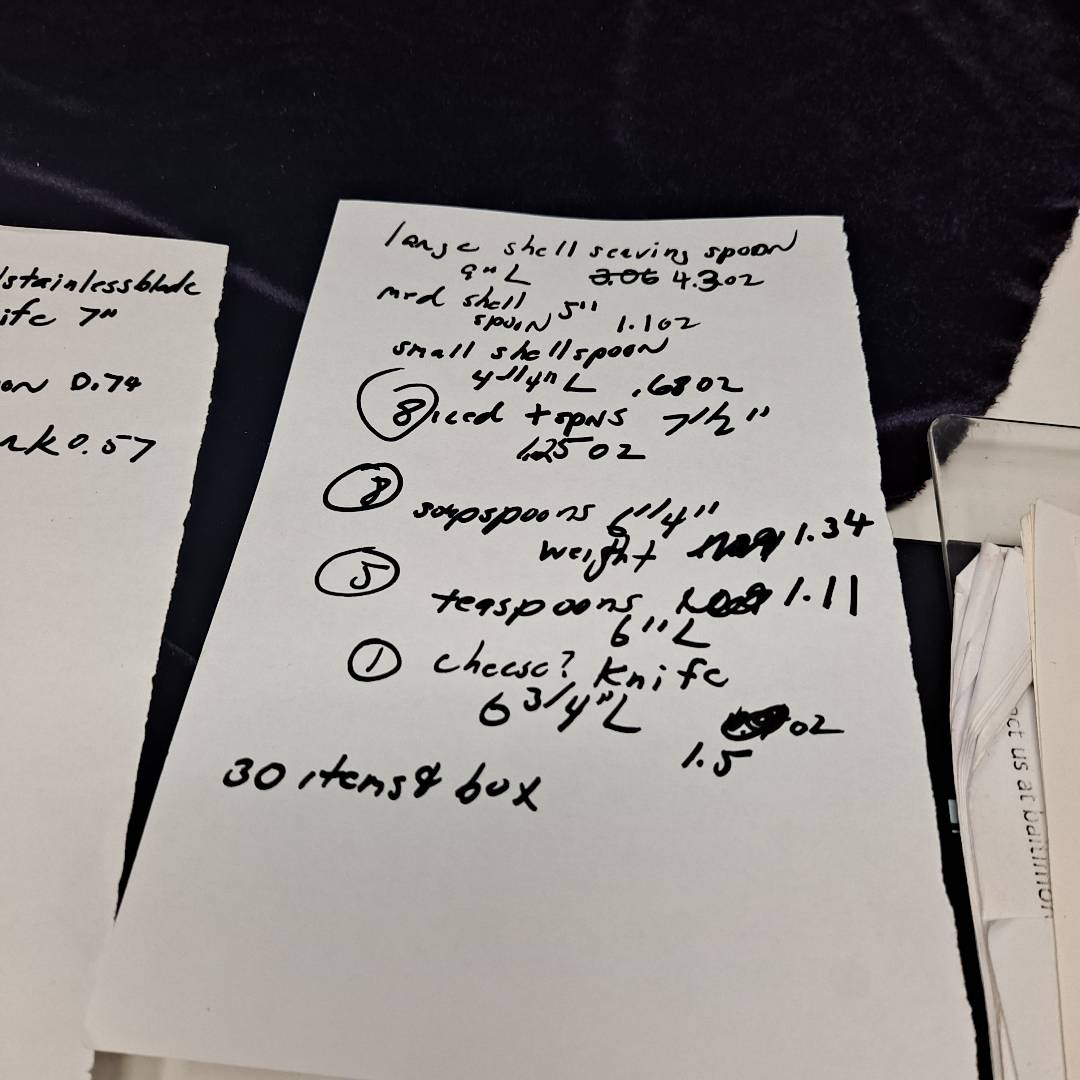 stainless blade
ife 7"
on 0.74
rk 0.57
large shell serving spoon
9" L 3.06 4.3oz
med shell
spoon 5" 1.1oz
small shell spoon
4 1/4" L .68oz
8 iced tspns 7 1/2"
1.25 oz
8
soupspoons 6 1/4"
weight 1.34
5
teaspoons 1.11
6" L
1 cheese? Knife
6 3/4" L oz
1.5
30 items & box
act us at